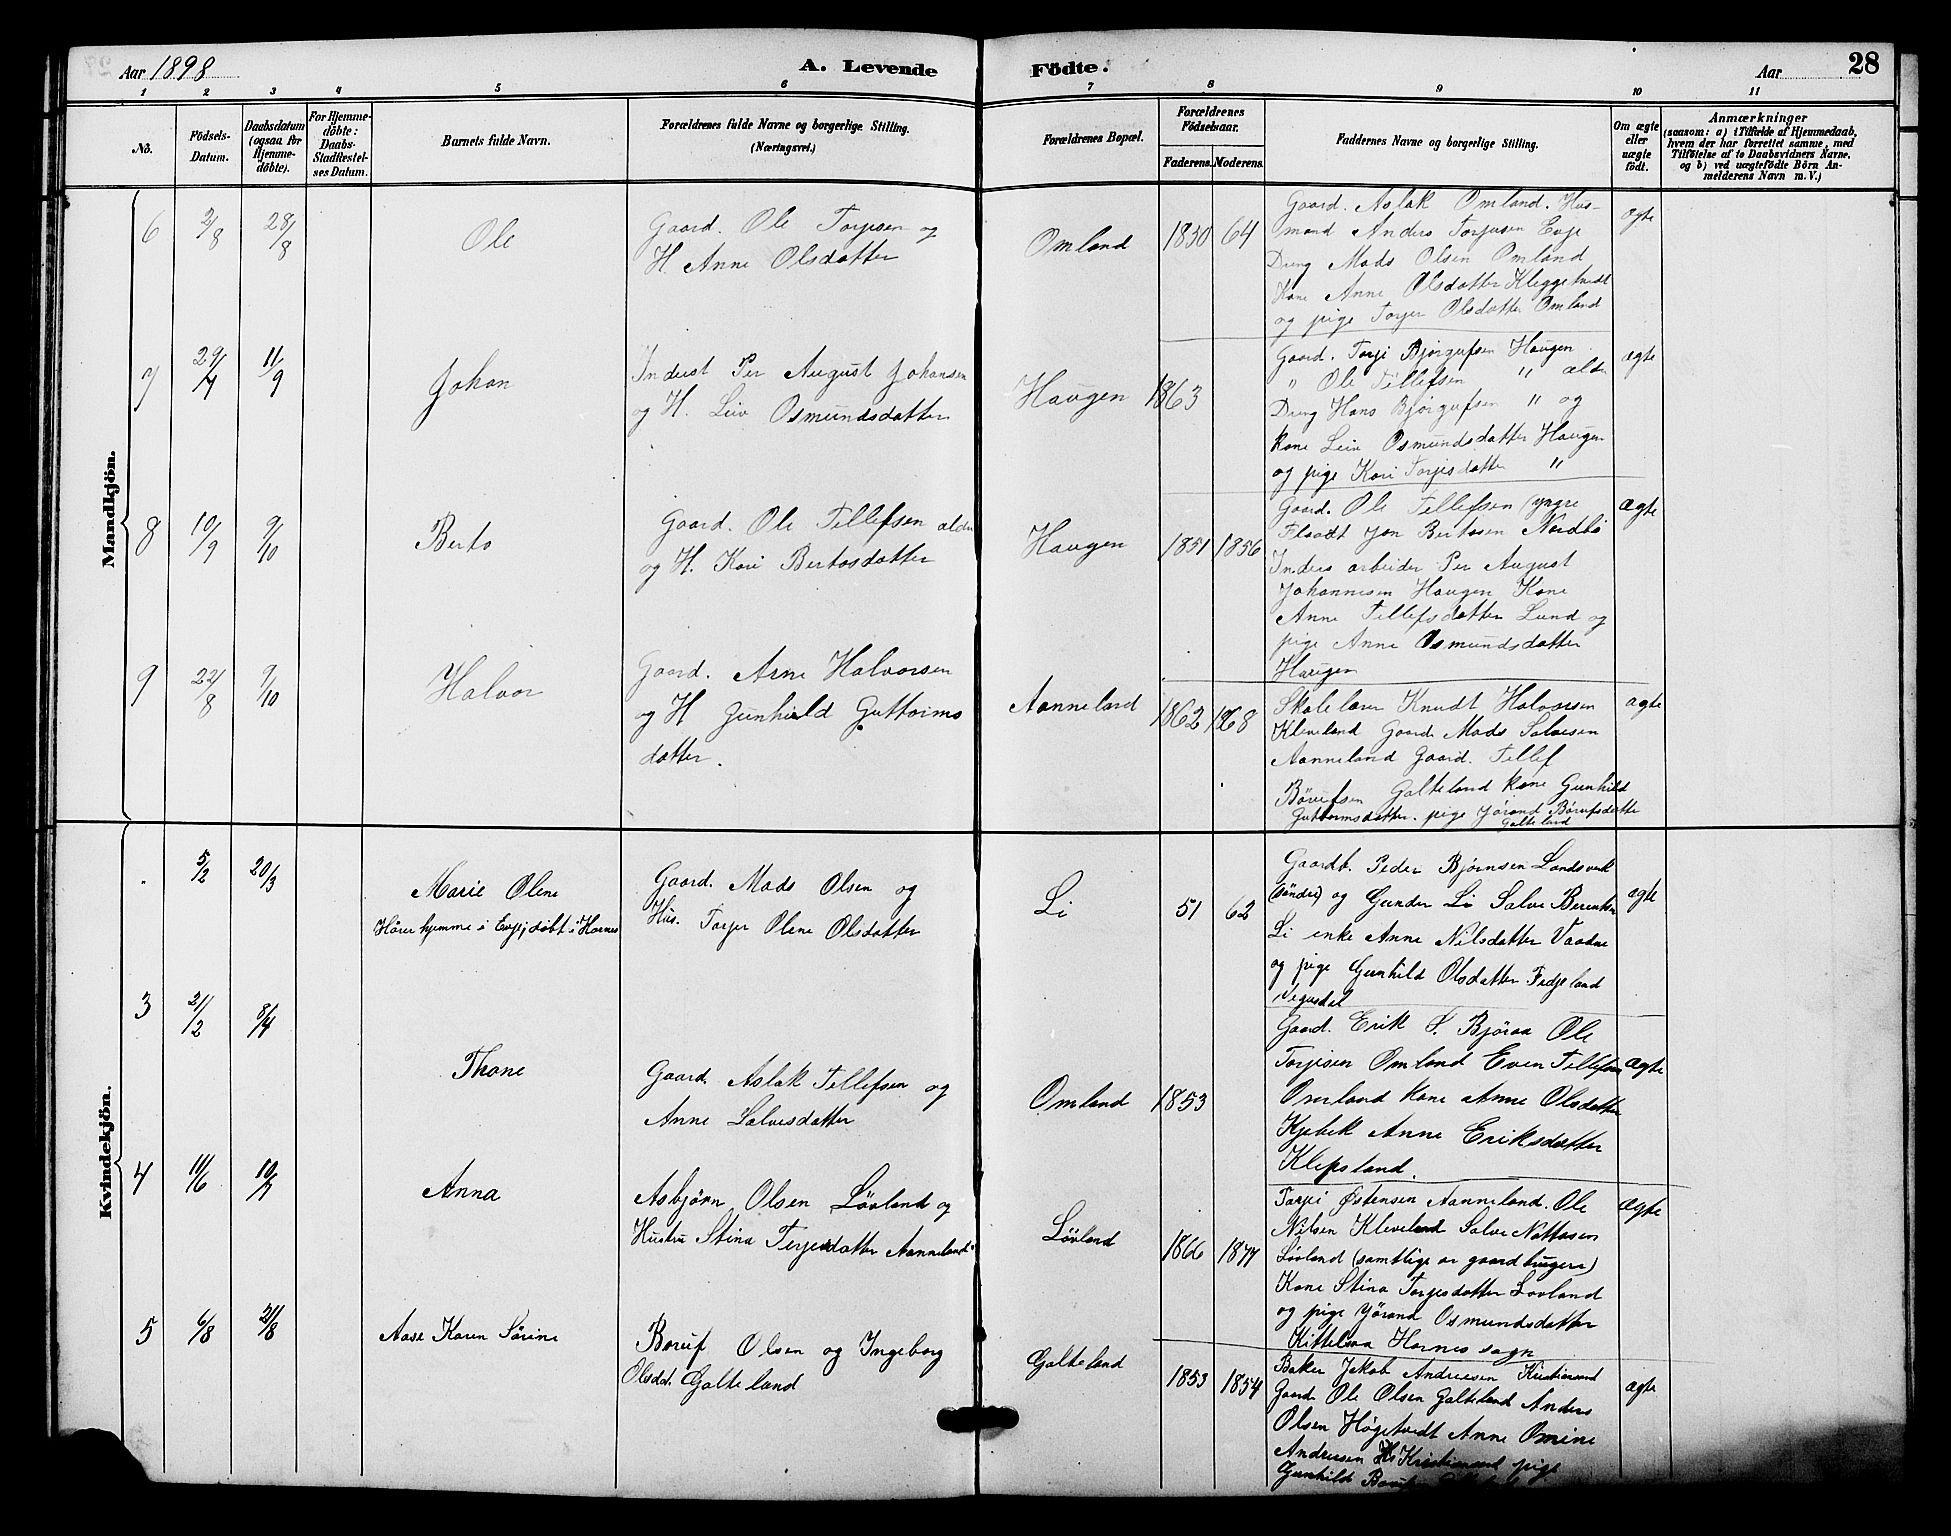 Aar 1898
A. Levende
Födte.
Aar
28
1
2
3
4
5
6
7
8
9
10
11
No.
Födsels-
Datum.
Daabsdatum
(ogsaa for
Hjemme-
döbte).
For Hjemme-
döbte:
Daabs-
Stadfæstel-
ses Datum.
Barnets fulde Navn.
Forældrenes fulde Navne og borgerlige Stilling.
(Næringsvei.)
Forældrenes Bopæl.
Forældrenes
Födselsaar.
Faderens.
Moderens.
Faddernes Navne og borgerlige Stilling.
Om ægte
eller
uægte
födt.
Anmærkninger
(saasom: a) i Tilfælde af Hjemmedaab,
hvem der har forrettet samme, med
Tilföielse af to Daabsvidners Navne,
og b) ved uægtefödte Börn An-
melderens Navn m. V.)
Mandkjön.
6
2/8
28/8
Ole
Gaard. Ole Torjesen og
H. Anne Olsdatter
Omland
1830
64
Gaard. Aslak Omland. Hus-
mand Anders Torjusen Evje
Dreng Mads Olsen Omland
Kone Anne Olsdatter
og pige Torjer Olsdatter Omland
ægte
7
29/7
11/9
Johan
Inderst Per August Johansen
og H. Leiv Osmundsdatter
Haugen
1863
Gaard. Torje Bjørgufsen Haugen
" Ole Tellefsen " ældr
Dreng Hans Bjørgufsen " og
kone Leiv Osmundsdatter Haugen
og pige Kari Torjesdatter "
ægte
8
10/9
9/10
Berto
Gaard. Ole Tellefsen ældr
og H. Kari Bertosdatter
Haugen
1851
1856
Gaard. Ole Tellefsen (yngre
Jon Bertosen Nordbö
Inders arbeider Per August
Johannesen Haugen Kone
Anne Tellefsdatter Lund og
pige Anne Osmundsdatter
Haugen
ægte
9
22/8
9/10
Halvor
Gaard. Arne Halvorsen
og H Gunhild Guttorms
datter.
Aanneland
1862
1868
Skolelærer Knudt Halvorsen
Kleveland Gaard. Mads Salvesen
Aanneland Gaard. Tellef
Börufsen Galteland kone Gunhild
Guttormsdatter. pige Jörand Börufsdatter
Galteland
ægte
Kvindekjön.
5/2
20/3
Marie Olene
Hører hjemme i Evje, døbt i Hornes
Gaard. Mads Olsen og
Hus. Torjer Olene Olsdatter
Li
51
62
Gaardb. Peder Bjørnsen Landsverk
(søndre) og Gunder Li Salve
Li enke Anne Nilsdatter Vaadne
og pige Gunhild Olsdatter Fedjeland
Vegusdal
ægte
3
21/2
8/4
Thone
Gaard. Aslak Tellefsen og
Anne Salvesdatter
Omland
1853
Gaard. Erik S. Bjøraa Ole
Torjesen Omland Even Tellefsen
Omland kone Anne Olsdatter
Kjebek Anne Eriksdatter
Klepsland.
ægte
4
11/6
10/7
Anna
Asbjørn Olsen Lövland og
Hustru Stina Terjesdatter Aanneland
Lövland
1866
1877
Torjei Østensen Aanneland. Ole
Nilsen Kleveland Salve Nottosen
Lövland (samtlige ar gaardbrugere)
Kone Stina Torjesdatter Lovland
og pige Jörand Osmundsdatter
Kittelsaa Hornes sogn
ægte
5
6/8
21/8
Aase Karen Sörine
Boruf Olsen og Ingeborg
Olsdt. Galteland
Galteland
1853
1854
Baker Jakob Andreesen Kristiansand
Gaard. Ole Olsen Galteland Anders
Olsen Høgetvedt Anne Omine
Andresen Kristiansand pige
Gunhild
ægte